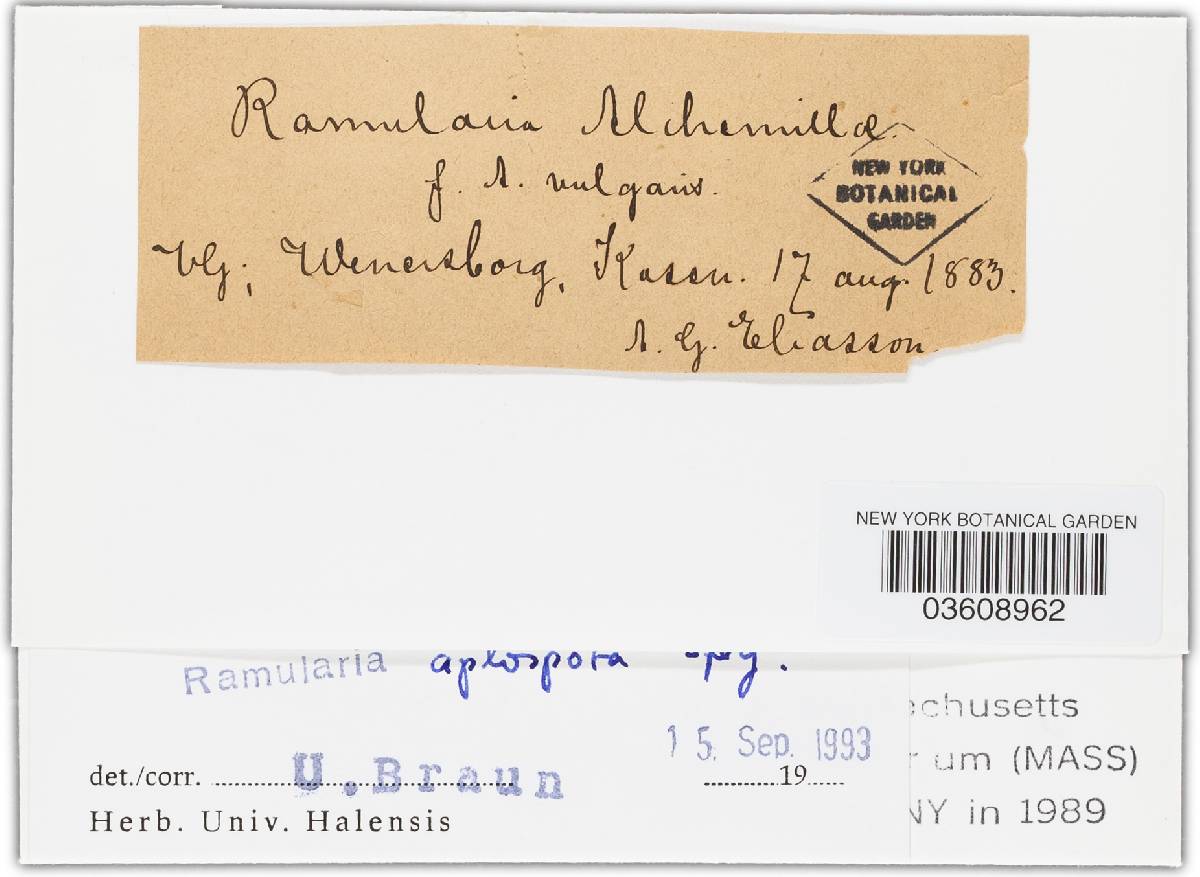 Ramularia Alchemillæ.
f. A. vulgaris.
VG; Wenersborg, Kasen. 17 aug. 1883.
A. G. Eliasson.
NEW YORK
BOTANICAL
GARDEN
NEW YORK BOTANICAL GARDEN
03608962
Ramularia aplospora Speg.
15. Sep. 1993
det./corr. U. Braun 19
Herb. Univ. Halensis
chusetts
um (MASS)
NY in 1989